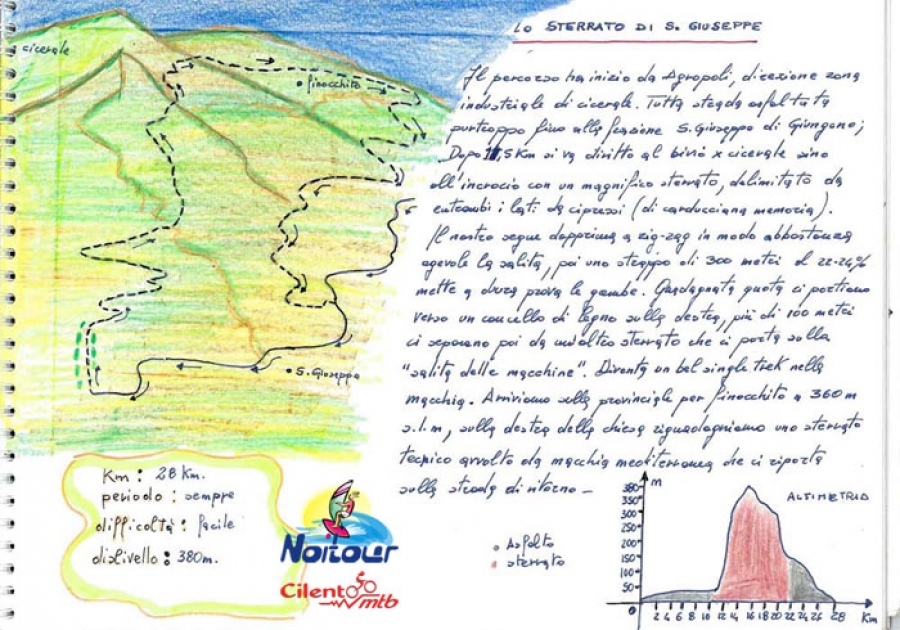 LO STERRATO DI S. GIUSEPPE
Il percorso ha inizio da Agropoli, direzione zona
industriale di cicerale. Tutta strada asfaltata
purtroppo fino alla frazione S. Giuseppe di Giungano;
Dopo 11,5 Km si va diritto al bivio x cicerale sino
all'incrocio con un magnifico sterrato, delimitato da
entrambi i lati da cipressi (di carducciana memoria).
Il nostro segue dapprima a zig-zag in modo abbastanza
agevole la salita, poi uno strappo di 300 metri al 22-24%
mette a dura prova le gambe. Guadagnata quota ci portiamo
verso un cancello di legno sulla destra, più di 100 metri
ci separano poi da un'altro sterrato che ci porta sulla
"salita delle macchine". Diventa un bel single trek nella
macchia. Arriviamo sulla provinciale per finocchito a 360m
s.l.m, sulla destra della chiesa riguadagniamo uno sterrato
tecnico avvolto da macchia mediterranea che ci riporta
sulla strada di ritorno –
cicerale
finocchito
S. Giuseppe
Km: 28 Km.
periodo: sempre
difficoltà: facile
dislivello: 380m.
Noitour
Cilento
mtb
Asfalto
sterrato
ALTIMETRIA
m
380
350
300
250
200
150
100
50
0
2 4 6 8 10 12 14 16 18 20 22 24 26 28 Km